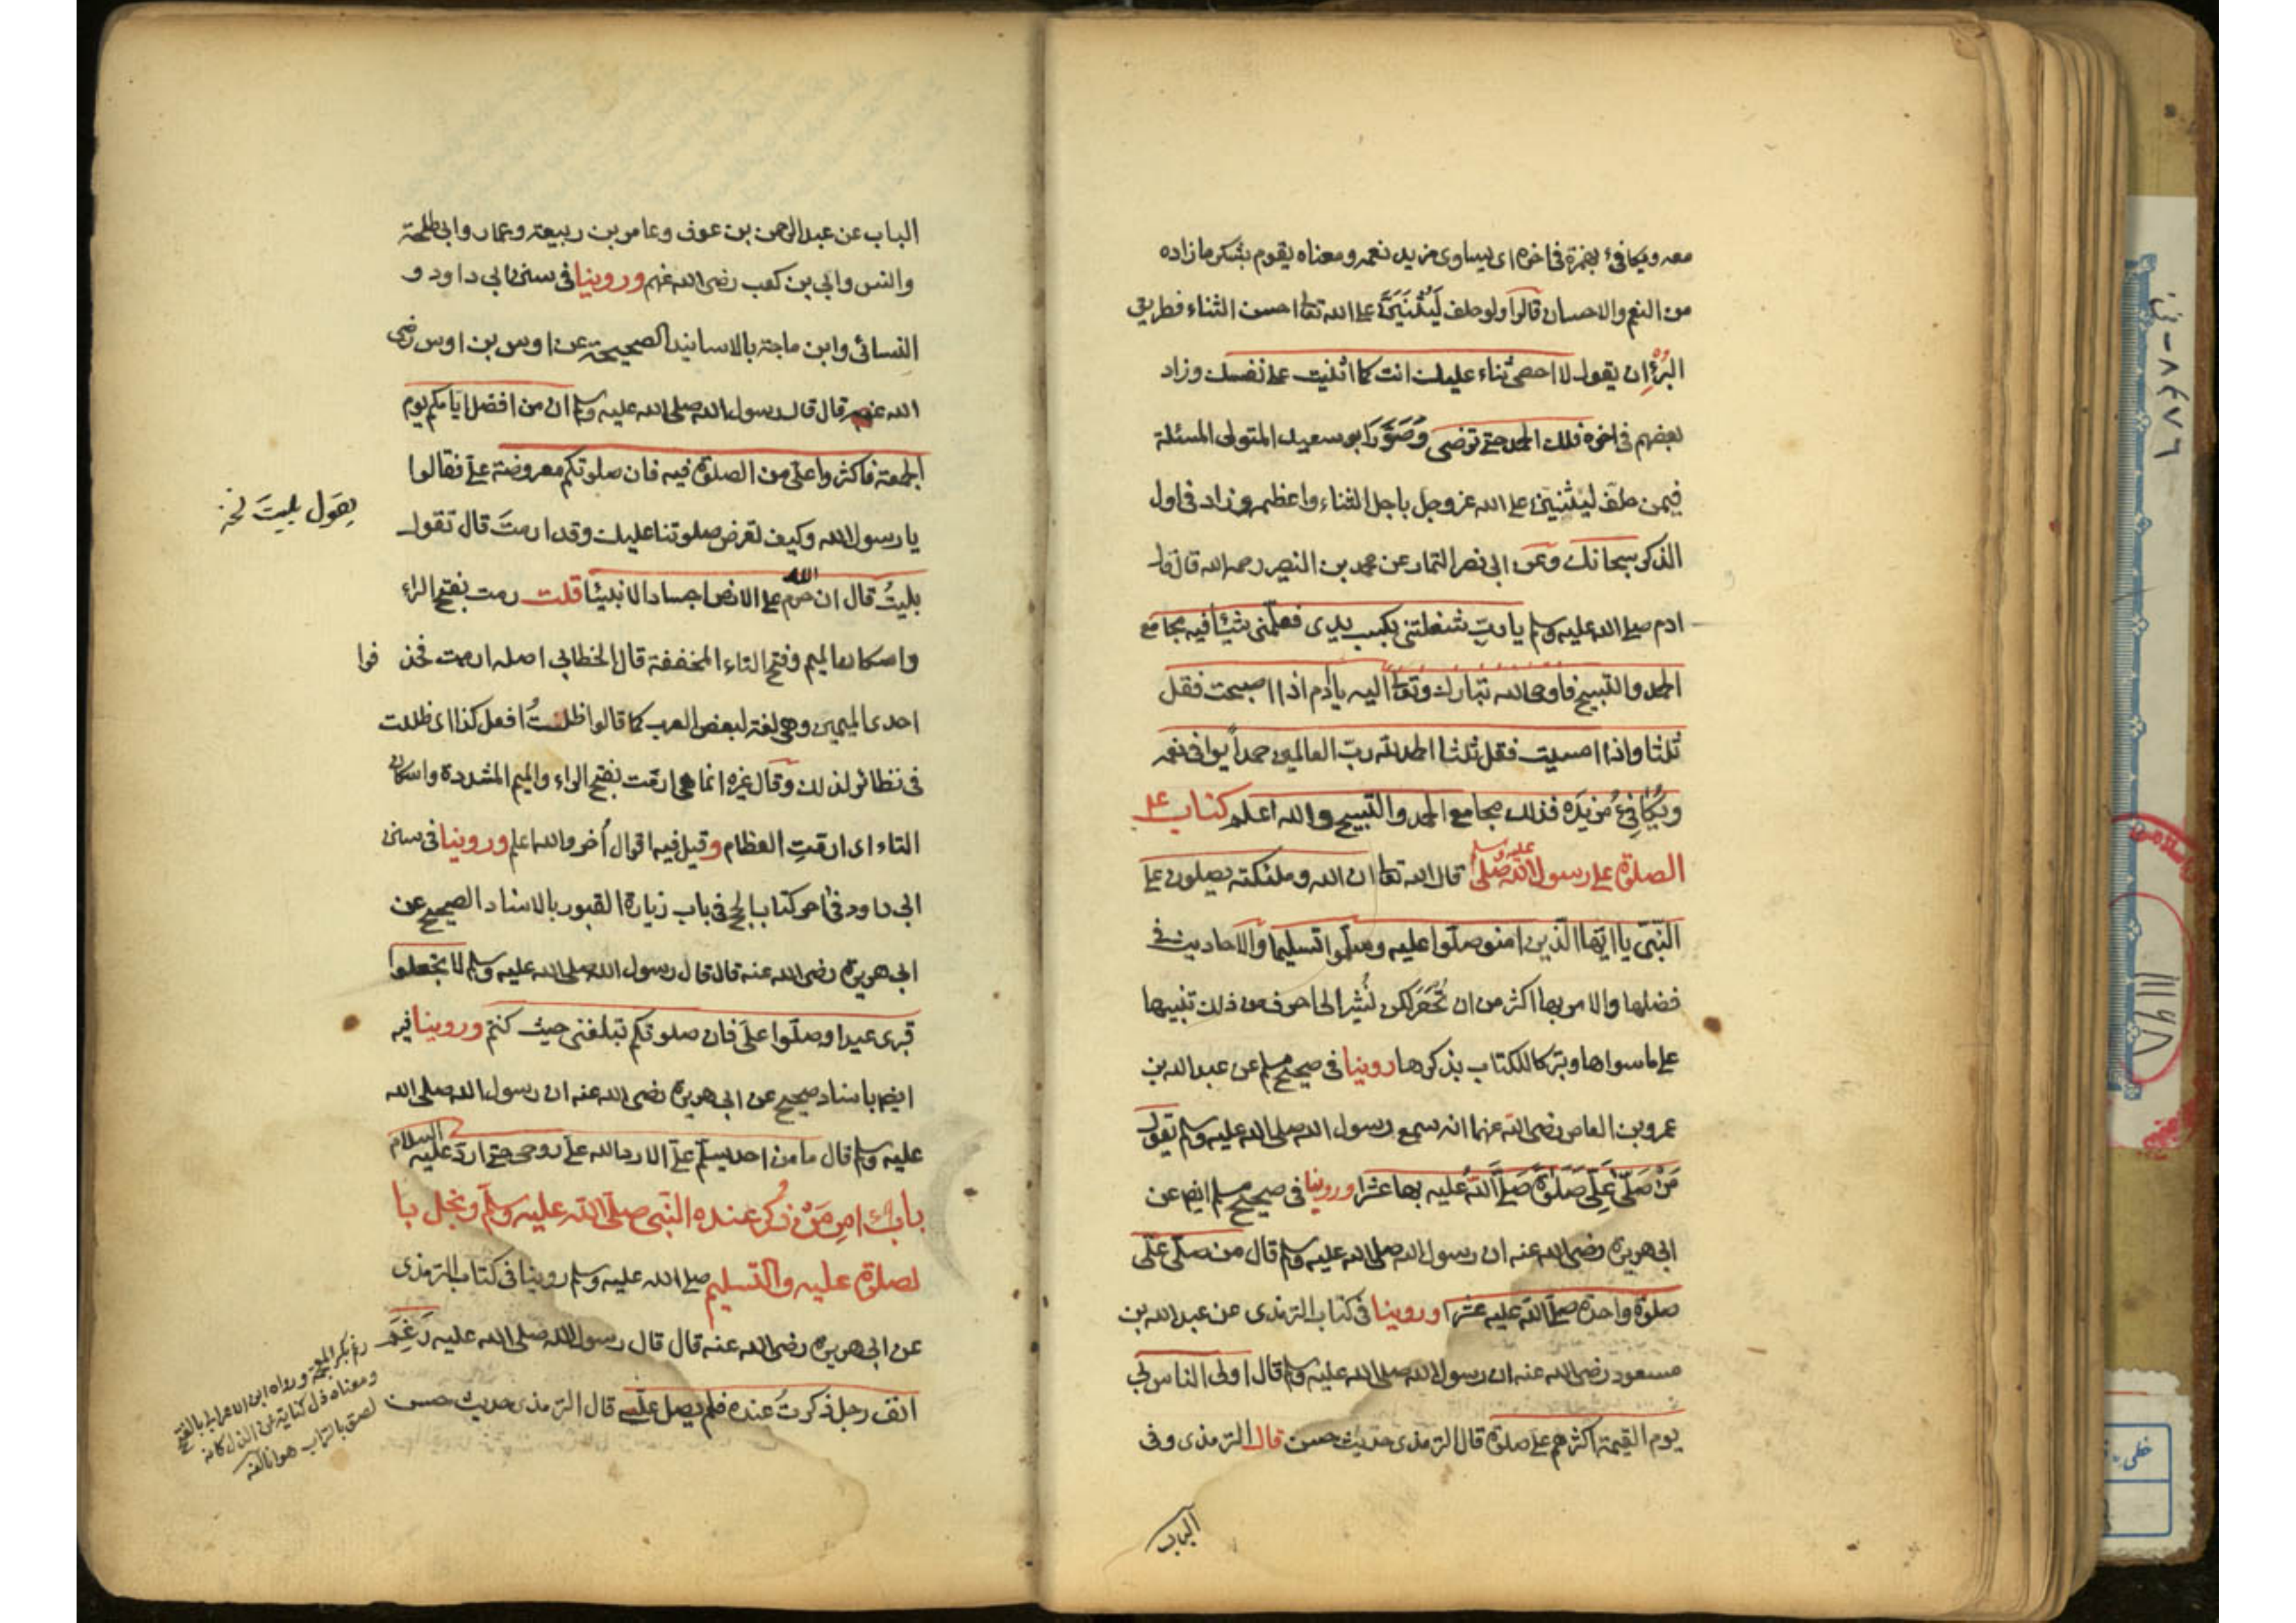 معه ويكافئ بهمزة في اخره اى يساوى مزيد نعمه ومعناه يقوم بشكر ما زاده
من النعم والاحسان قالوا ولو حلف ليثنينّ على الله تعا احسن الثناء فطريق
البرّ ان يقول لا احصى ثناء عليك انت كما اثنيت على نفسك وزاد
بعضهم فى اخره فلك الحمد حتى ترضى وصَوَّرَ ابو سعيد المتولى المسئلة
فيمن حلف ليثنينّ على الله عز وجل باجل الثناء واعظمه وزاد فى اول
الذكر سبحانك وعن ابى نصر التمار عن محمد بن النصير رحمه الله قال قال
ادم صلى الله عليه وسلم يا ربّ شغلتنى بكسب يدى فعلّمنى شيئا فيه مجامع
الحمد والتسبيح فاوحى الله تبارك وتعا اليه يا ادم اذا اصبحت فقل
ثلثا واذا امسيت فقل ثلثا الحمد لله ربّ العالمين حمداً يوافى نعمه
ويكافئ مزيده فذلك مجامع الحمد والتسبيح والله اعلم كتاب
الصلوة على رسول الله صلى عليه وسلم قال الله تعا ان الله وملئكته يصلون على
النّبىّ يا ايّها الّذين امنو صلّوا عليه وسلّموا تسليما والاحاديث فى
فضلها والامر بها اكثر من ان تُحْصَر لكن نُشير الى احرف من ذلك تنبيها
على ما سواها وتبركا للكتاب بذكرها روينا فى صحيح مسلم عن عبد الله بن
عمرو بن العاص رضى الله عنهما انه سمع رسول الله صلى الله عليه وسلم يقول
مَنْ صَلَّى عَلَىَّ صَلَوٰةً صَلَّى اللّٰهُ عليه بها عشرا وروينا فى صحيح مسلم ايضا عن
ابى هريرة رضى الله عنه ان رسول الله صلى الله عليه وسلم قال من صلّى علىّ
صلوة واحدة صلّى اللّه عليه عشرا وروينا فى كتاب الترمذى عن عبد الله بن
مسعود رضى الله عنه ان رسول الله صلى الله عليه وسلم قال اولى الناس بى
يوم القيمة اكثرهم على صلوة قال الترمذى حديث حسن قال الترمذى وفى
الباب
الباب عن عبد الرحمن بن عوف وعامر بن ربيعة وعمار وابى طلحة
وانس وابى بن كعب رضى الله عنهم وروينا فى سنن ابى داود و
النسائى وابن ماجة بالاسانيد الصحيحة عن اوس بن اوس رضى
الله عنهم قال قال رسول الله صلى الله عليه وسلم ان من افضل ايامكم يوم
الجمعة فاكثروا علىّ من الصلوة فيه فان صلوتكم معروضة علىّ فقالوا
يا رسول الله وكيف تعرض صلوتنا عليك وقد ارمتَ قال تقول
يقول بليتَ نخه
بليتُ قال ان الله حرم على الارض اجساد الانبيئا قلت رمت بفتح الراء
واسكان الميم وفتح التاء المخففة قال الخطابى اصله ارمت فحذ فوا
احدى الميمين وهى لغة لبعض العرب كما قالوا ظلتُ افعل كذا اى ظللت
فى نظائر لذلك وقال غيره انما هى ارمّت بفتح الراء والميم المشددة واسكان
التاء اى ارمّتِ العظام وقيل فيه اقوال اُخر والله اعلم وروينا فى سنن
ابى داود فى اخر كتاب الحج فى باب زيارة القبور بالاسناد الصحيح عن
ابى هريرة رضى الله عنه قال قال رسول الله صلى الله عليه وسلم لا تجعلوا
قبرى عيدا وصلّوا علىّ فان صلوتكم تبلغنى حيث كنتم وروينا فيه
ايضا باسناد صحيح عن ابى هريرة رضى الله عنه ان رسول الله صلى الله
عليه وسلم قال ما من احد يسلّم علىّ الا رد الله علىّ روحى حتى اردّ عليه السلام
باب امرِ مَنْ ذُكر عنده النّبى صلّى الله عليه وسلّم ونجل با
لصلوة عليه والتسليم صلى الله عليه وسلم روينا فى كتاب الترمذى
عن ابى هريرة رضى الله عنه قال قال رسول الله صلى الله عليه رَغِمَ
انف رجل ذكرتُ عنده فلم يصل علىّ قال الترمذى حديث حسن
رغم بكسر المعجمة ورواه ابن الاعرابى بالفتح
ومعناه ذل كناية عن الذل كانه
لصق بالتراب هوانا لفه
خطى